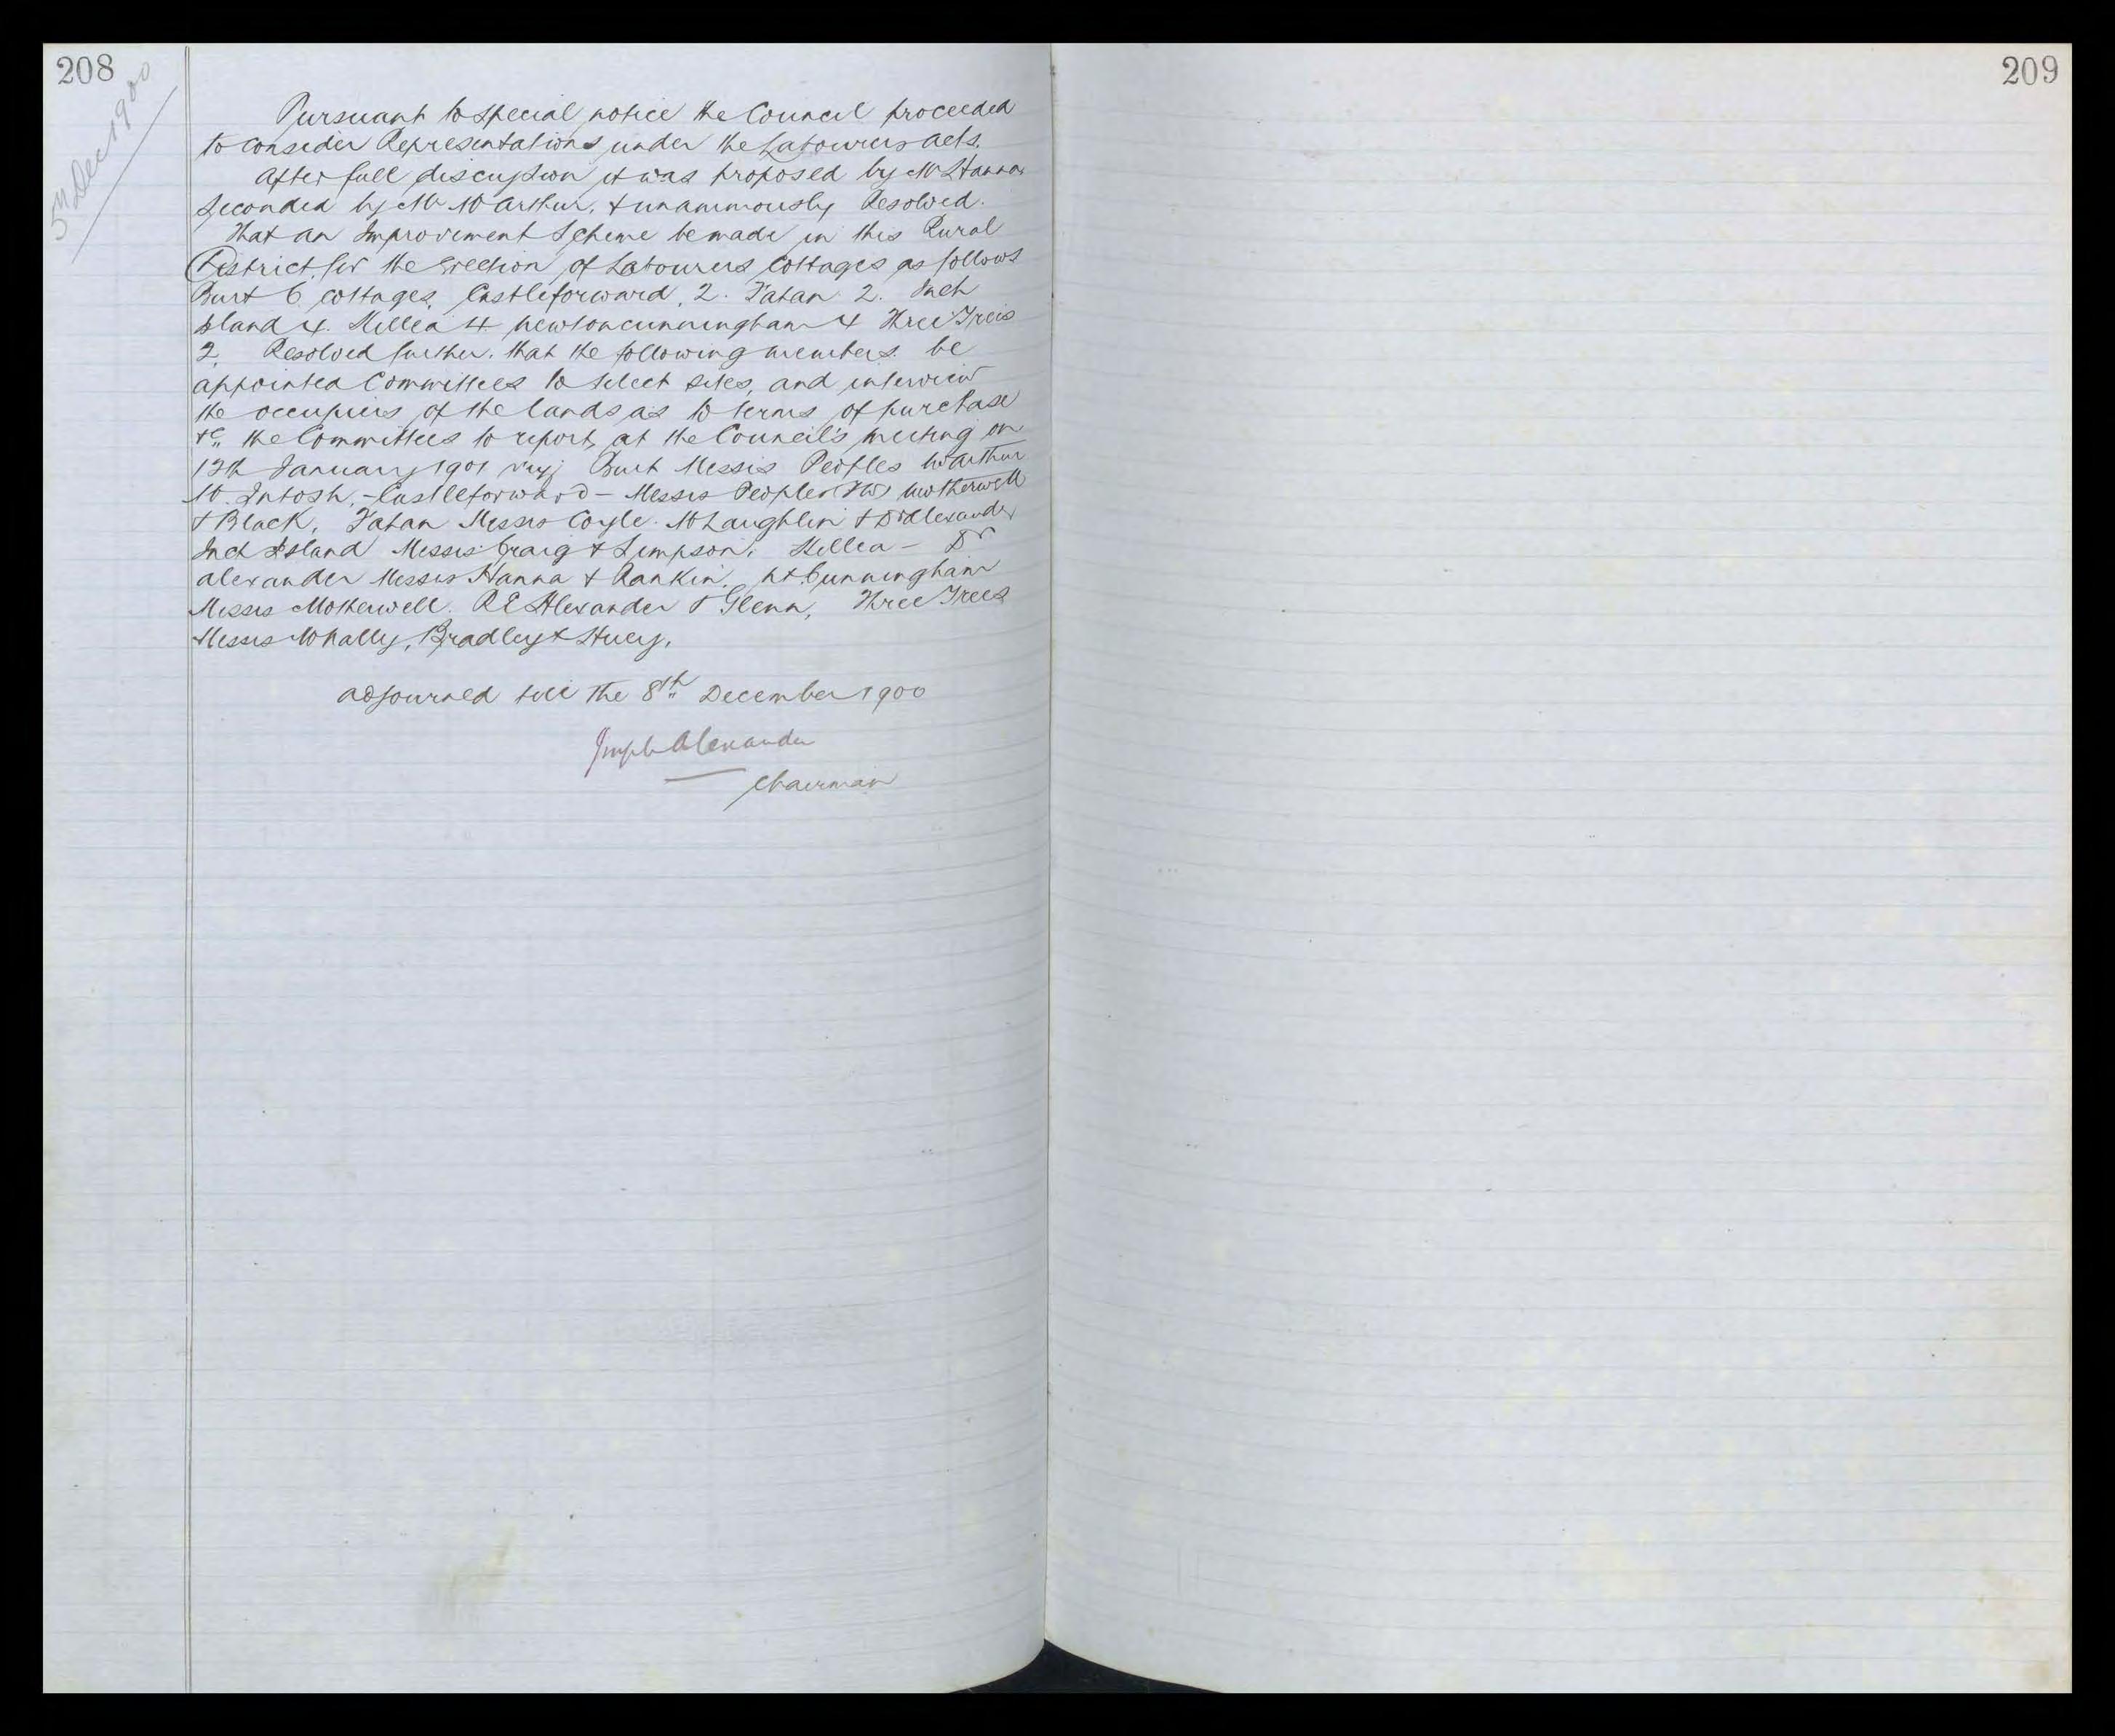 208
209
5th Dec 1900
Pursuant to special notice the Council proceeded
to consider Representations under the Labourers Acts.
After full discussion it was proposed by Mr Hanna
Seconded by Mr McArthur, & unanimously Resolved.
That an Improvement Scheme be made in this Rural
District for the erection of Labourers Cottages as follows
Burt 6 cottages, Castleforward, 2. Fahan 2. Inch
Island 4. Killea 4 Newtoncunningham 4 Three Trees
2. Resolved further, that the following members be
appointed Committees to select sites, and interview
the occupiers of the lands as to terms of purchase
&c. the Committees to report, at the Council's meeting on
12th January 1901 viz; Burt Messrs Peoples McArthur
McIntosh, - Castleforward - Messrs Peoples (TW) Motherwell
& Black, Fahan Messrs Coyle. McLaughlin & Dr Alexander
Inch Island Messrs Craig & Simpson. Killea - Dr
Alexander Messrs Hanna & Rankin. Nt.Cunningham
Messrs Motherwell. R E Alexander & Glenn, Three Trees
Messrs McNally, Bradley & Huey.
Adjourned till the 8th December 1900
Joseph Alexander
Chairman